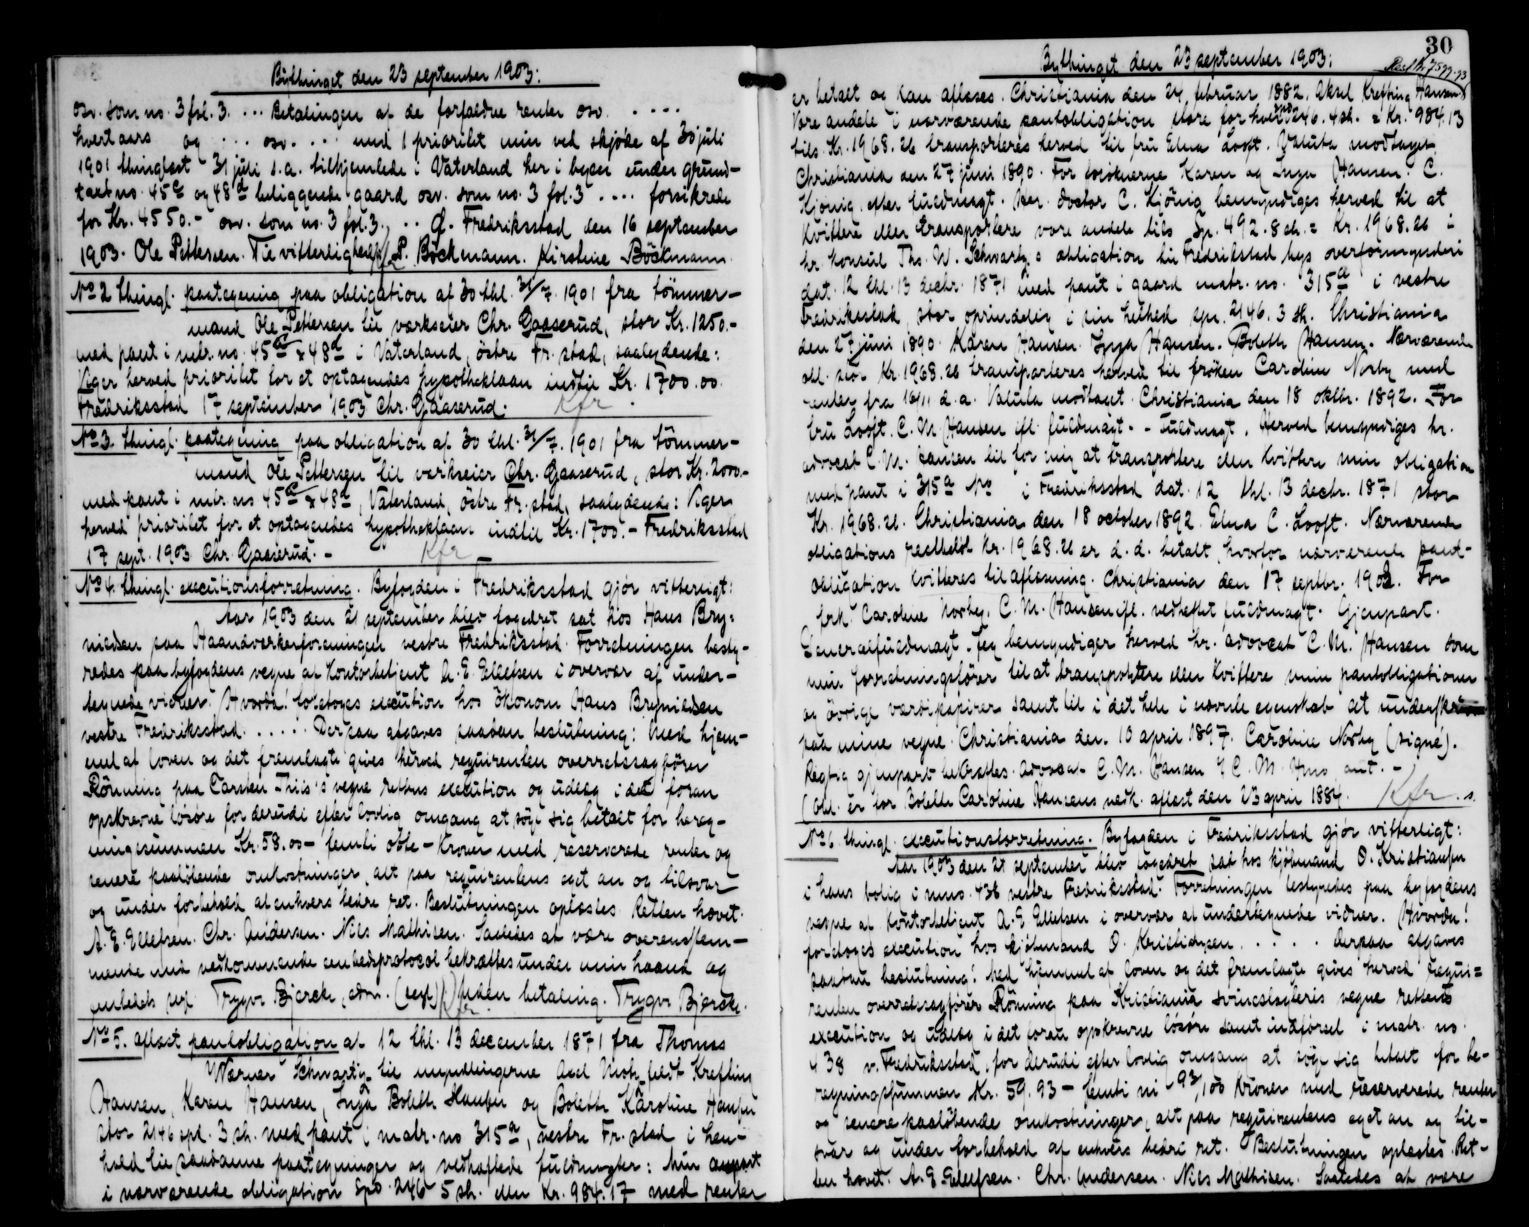 Bythinget den 23 september 1903:
osv. som no. 3 fol. 3. ... Betalingen af de forfaldne renter osv. ....
hvert aars og ... osv. ... med 1 prioritet min ved skjøde af 30 juli
1901 thinglæst 31 juli s.a. tilhjemlede i Vaterland her i byen under grund-
taxt no. 45a og 48a beliggende gaard osv. som no. 3 fol. 3 .... forsikrede
for Kr. 4550.- osv. som no. 3 fol. 3. .. Fredriksstad den 16 september
1903. Ole Pettersen. Til vitterlighed: P. Böckmann. Kirstine Böckmann.
No 2 thingl. paategning paa obligation af 30 thl. 31/7. 1901 fra tömmer-
mand Ole Pettersen til værkseier Chr. Gaaserud, stor Kr. 1250.-
med pant i mtr. no. 45a & 48a i Vaterland, östre Fr.stad, saalydende:
Viger herved prioritet for et optagendes hypotheklaan indtil Kr. 1700.00.
Fredriksstad 17 september 1903 Chr. Gaaserud. Kfr.
No 3. thingl. paategning paa obligation af 30 thl. 31/7. 1901 fra tömmer-
mand Ole Pettersen til verkseier Chr. Gaaserud, stor Kr. 2000-
med pant i mtr. no 45a & 48a, Vaterland, östre Fr.stad, saalydende: Viger
herved prioritet for et optagendes hypotheklaan indtil Kr. 1700.- Fredriksstad
17 sept. 1903 Chr. Gaaserud. - Kfr
No 4. thingl. executionsforretning. Byfogden i Fredriksstad gjör vitterligt:
Aar 1903 den 21 september blev fogedret sat hos Hans Bry-
nildsen paa Haandverkerforeningen vestre Fredriksstad. Forretningen besty-
redes paa byfogdens vegne af Kontorbetjent A. E. Ellefsen i overvær af under-
tegnede vidner. Hvorda! foretoges execution hos ökonom Hans Brynildsen
vestre Fredriksstad. ..... Derpaa afgaves saadan beslutning: Med hjem-
mel af loven og det fremlagte gives herved requirenten overretssagförer
Rönning paa Carsten Friis's vegne rettens execution og udlæg i det foran
opskrevne lösöre for derudi efter lovlig omgang at söge sig betalt for bereg-
ningssummen Kr. 58.00 - femti otte - Kroner med reserverede renter og
senere paalöbende omkostninger, alt paa requirentens eget an og tilsvar
og under forbehold af enhvers bedre ret. Beslutningen oplæstes. Retten hævet.
A. E. Ellefsen. Chr. Andersen. Nils Mathisen. Saaledes at være overensstem-
mende med vedkommende embedsprotocol bekræftes under min haand og
embeds segl Trygve Bjercke, const. (segl) Uden betaling. Trygve Bjercke.
No 5. aflæst pantobligation af 12 thl. 13 december 1871 fra Thomas
Werner Schwartz til umyndlingerne Axel Krefting
Hansen, Karen Hansen, Inga Boleth Hansen og Boleth Karoline Hansen
stor 2146 spd. 3 sh. med pant i matr. no 315a, vestre Fr.stad i hen-
hold til saadanne paategninger og vedhæftede fuldmagter: Min anpart
i nærværende obligation Spd. 246 5 sh. eller Kr. 984.17 med renter
30
Bythinget den 23 september 1903:
er betalt og kan aflæses. Christiania den 24 februar 1882. Aksel Krefting Hansen
Vore andele i nærværende pantobligation store for hver 246. 4 sh. = Kr. 984.13
tils. Kr. 1968.26 transporteres herved til fru Elna Looft. Valuta modtaget.
Christiania den 27 juni 1890. For sösknerne Karen og Inga Hansen: C.
Kjönig efter fuldmagt. Hr. doctor C. Kjönig bemyndiges herved til at
kvittere eller transportere vore andele tils Sp. 492. 8 sh. = Kr. 1968.26 i
hr. konsul Ths. W. Schwartz's obligation til Fredrikstad bys overformynderi
dat. 12 thl. 13 decbr. 1871 med pant i gaard matr. no. 315a i vestre
Fredriksstad, stor oprindelig i sin helhed spd. 2146. 3 sh. Christiania
den 27 juni 1890. Karen Hansen Inga Hansen. Boleth Hansen. Nærværende
obl. stor Kr. 1968.26 transporteres herved til fröken Caroline Norby med
renter fra 18/11 d.a. Valuta modtaget. Christiania den 18 oktbr. 1892. For
fru Looft. C. M. Hansen ifl. fuldmagt. - Fuldmagt. Herved bemyndiges hr.
advocat C. M. Hansen til for mig at transportere eller kvittere min obligation
med pant i 315a i Fredriksstad dat. 12 thl. 13 decbr. 1871 stor
Kr. 1968.26. Christiania den 18 october 1892. Elna C. Looft. Nærværende
obligations restbelöb Kr. 1968.26 er d.d. betalt hvorfor nærværende pant-
obligation kvitteres til aflæsning. Christiania den 17 septbr. 1903. For
frk. Caroline Norby. C. M. Hansen ifl. vedheftet fuldmagt. Gjenpart.
Generalfuldmagt. Jeg bemyndiger herved hr. advocat C. M. Hansen som
min forretningsförer til at transportere eller kvittere mine pantobligationer
og övrige værdipapirer samt til i det hele i nævnte egenskab at underskrive
paa mine vegne. Christiania den. 10 april 1897. Caroline Norby (signé).
Rigtig gjenpart bekræftes. Advocat C. M. Hansen
(Obl. er for Boleth Caroline Hansens vedk. aflæst den 23 april 1884. Kfr.
No 6. thingl. executionsforretning. Byfogden i Fredriksstad gjör vitterligt:
Aar 1903 den 21 september blev fogedret sat hos kjöbmand O. Kristiansen
i hans bolig i mno. 436 vestre Fredriksstad. Forretningen bestyredes paa byfogdens
vegne af Kontorbetjent A. E. Ellefsen i overvær af undertegnede vidner. Hvorda!
foretoges execution hos kjöbmand O. Kristiansen. .... Derpaa afgaves
saadan beslutning: Med hjemmel af loven og det fremlagte gives herved requi-
renten overretssagförer Rönning paa Kristiania svineslagteris vegne rettens
execution og udlæg i det foran opskrevne lösöre samt indförsel i matr. no.
438 v. Fredriksstad, for derudi efter lovlig omgang at söge sig betalt for be-
regningssummen Kr. 59.93 - femti ni 93/100 Kroner med reserverede renter
og senere paalöbende omkostninger, alt paa requirentens eget an og til-
svar og under forbehold af enhvers bedre ret. Beslutningen oplæstes. Ret-
ten hævet. A. E. Ellefsen. Chr. Andersen. Nils Mathisen. Saaledes at være